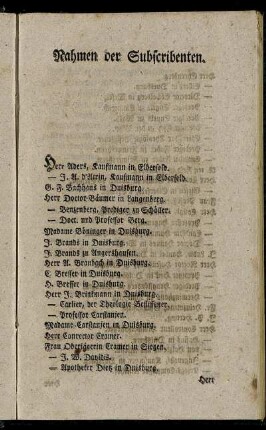 Nahmen der Subscribenten.
Herr Aders, Kaufmann in Elberfeld.
— J. A. d'Alwin, Kaufmann in Elberfeld.
G. F. Backhaus in Duisburg.
Herr Doctor Bäumer in Langenberg.
— Benzenberg, Prediger zu Schöller.
— Doct. und Professor Berg.
Madame Böninger in Duisburg.
J. Brands in Duisburg.
J. Brands in Angershausen.
Herr A. Brambach in Duisburg.
C. Bresser in Duisburg.
H. Bresser in Duisburg.
Herr J. Brinkmann in Duisburg.
— Carlier, der Theologie Beflissener.
— Professor Carstanjen.
Madame Carstanjen in Duisburg.
Herr Conrector Cramer.
Frau Oberjägerin Cramer in Siegen.
— J. W. Davidis.
— Apotheker Dietz in Duisburg.
Herr